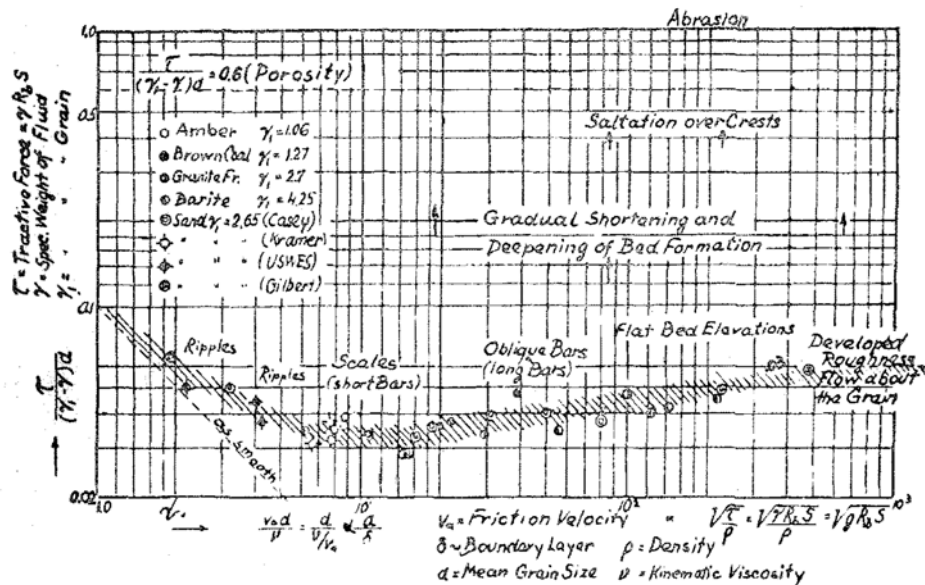 Abrasion
1.0
τ/((γ₁-γ)d) = 0.6 (Porosity)
0.5
Saltation over Crests
○ Amber γ₁=1.06
Brown Coal γ₁=1.27
Granite Fr. γ₁=2.7
Barite γ₁=4.25
Sand γ₁=2.65 (Casey)
" " " (Kramer)
" " " (USWES)
" " " (Gilbert)
Gradual Shortening and
Deepening of Bed Formation
τ = Tractive Force = γ R_b S
γ = Spec. Weight of Fluid
γ₁ = " " " Grain
0.1
1.0
Ripples
Ripples
Scales
(short Bars)
Oblique Bars
(long Bars)
Flat Bed Elevations
Developed
Roughness
Flow about
the Grain
as smooth
τ/((γ₁-γ)d)
0.02
10¹
10²
10³
v_* d/ν = d/(ν/v_*) ∝ d/δ
v_* = Friction Velocity = √(τ/ρ) = √(γR_bS/ρ) = √(gR_bS)
δ ~ Boundary Layer ρ = Density
d = Mean Grain Size ν = Kinematic Viscosity